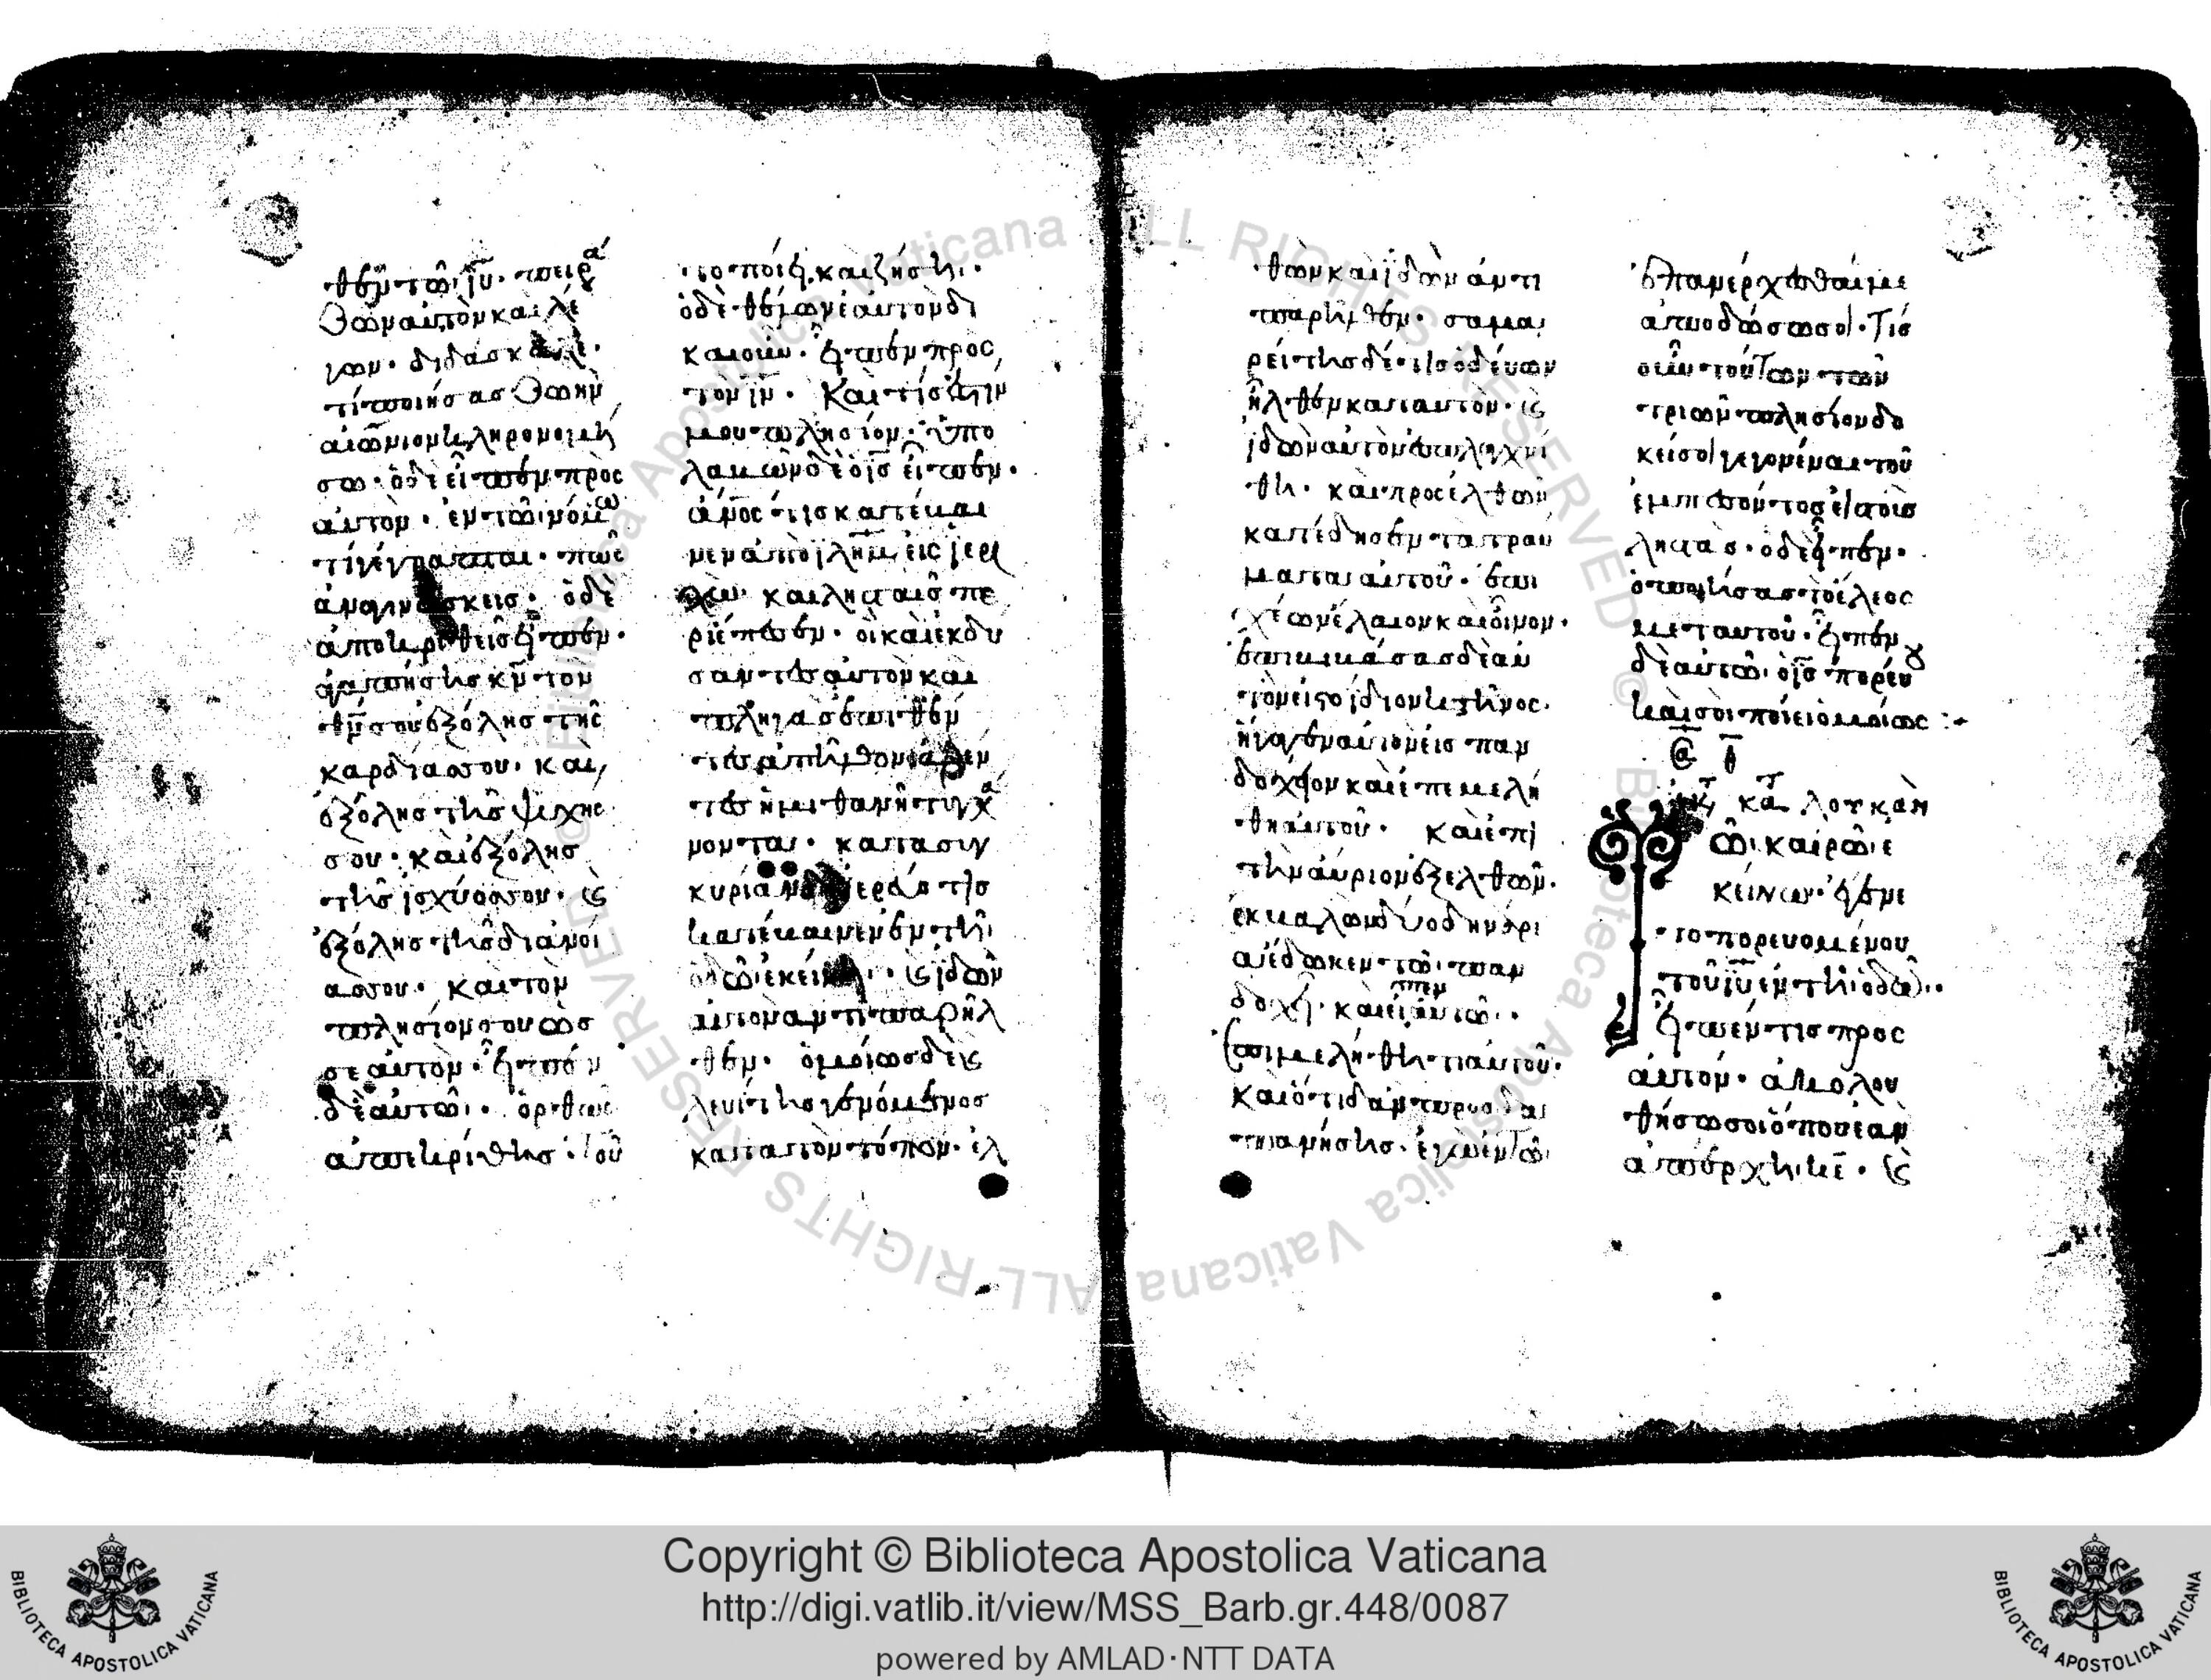 θεν τῶ ιῦ. πειρα
ζων αὐτὸν καὶ λέ
γων. διδάσκαλε.
τί ποιήσας ζωὴν
αἰώνιον κληρονομή
σω. ὁδὲ εἶπεν πρὸς
αὐτόν. ἐν τῶ νόμω
τί γέγραπται. πῶς
ἀναγινώσκεις. ὁδὲ
ἀποκριθεὶς εἶπεν.
ἀγαπήσης κν τὸν
θν σου ἐξόλης τῆς
καρδίας σου. καὶ
ἐξόλης τῆς ψυχῆς
σου. καὶ ἐξόλης
τῆς ἰσχύος σου. καὶ
ἐξόλης τῆς διανοί
ας σου. καὶ τὸν
πλησίον σου ὡς
σεαυτόν. εἶπεν
δὲ αὐτῶ. ὀρθῶς
ἀπεκρίθης. τοῦ
το ποίει καὶ ζήση.
ὁδὲ θέλων ἑαυτὸν δι
καιοῦν. εἶπεν προς
τὸν ιν. Καὶ τίς ἐστίν
μου πλησίον. ὑπο
λαβὼν δὲ ὁ ις εἶπεν.
ἄνος τις κατέβαι
νεν ἀπὸ ιλημ εἰς ιερι
χὼ. καὶ λησταῖς πε
ριέπεσεν. οἳ καὶ ἐκδύ
σαντες αὐτὸν καὶ
πληγὰς ἐπιθέν
τες ἀπῆλθον ἀφέν
τες ἡμιθανῆ τυγχά
νοντα. κατα συγ
κυρίαν δὲ ἱερεύς τις
κατέβαινεν ἐν τῆ
ὁδῶ ἐκείνη. καὶ ἰδὼν
αὐτὸν ἀντιπαρῆλ
θεν. ὁμοίως δὲ καὶ
λευίτης γενόμενος
κατα τὸν τόπον. ἐλ
θὼν καὶ ἰδὼν ἀντι
παρῆλθεν. σαμα
ρείτης δέ τις ὁδεύων
ἦλθεν κατ αὐτόν. καὶ
ἰδὼν αὐτὸν ἐσπλαγχνί
σθη. καὶ προσελθὼν
κατέδησεν τὰ τραύ
ματα αὐτοῦ. ἐπι
χέων ἔλαιον καὶ οἶνον.
ἐπιβιβάσας δὲ αὐ
τὸν εἰς τὸ ἴδιον κτῆνος.
ἤγαγεν αὐτὸν εἰς παν
δοχεῖον καὶ ἐπεμελή
θη αὐτοῦ. καὶ ἐπὶ
τὴν αὔριον ἐξελθών.
ἐκβαλὼν δύο δηνάρι
α ἔδωκεν τῶ παν
δοχεῖ. καὶ εἶπεν αὐτῶ.
ἐπιμελήθητι αὐτοῦ.
καὶ ὅτι δ ἂν προσδα
πανήσης. ἐγὼ ἐν τῶ
ἐπανέρχεσθαί με
ἀποδώσω σοι. Τίς
οὖν τούτων τῶν
τριῶν πλησίον δο
κεῖ σοι γεγονέναι τοῦ
ἐμπεσόντος εἰς τοὺς
ληστάς. ὁδὲ εἶπεν.
ὁ ποιήσας τὸ ἔλεος
μετ αυτοῦ. εἶπεν
δὲ αὐτῶ ὁ ις πορεύου
καὶ σοὶ ποίει ὁμοίως :-
κατ λουκὰν
ῶ καιρῶ ἐ
κείνω. ἐγένε
το πορευομένου
τοῦ ιυ ἐν τῆ ὁδῶ.
εἶπέν τις προς
αὐτόν. ἀκολου
θήσω σοι ὅπου ἐὰν
ἀπέρχη κε. καὶ
Copyright © Biblioteca Apostolica Vaticana
http://digi.vatlib.it/view/MSS_Barb.gr.448/0087
powered by AMLAD·NTT DATA
BIBLIOTECA APOSTOLICA VATICANA
BIBLIOTECA APOSTOLICA VATICANA
© Biblioteca Apostolica Vaticana ALL RIGHTS RESERVED